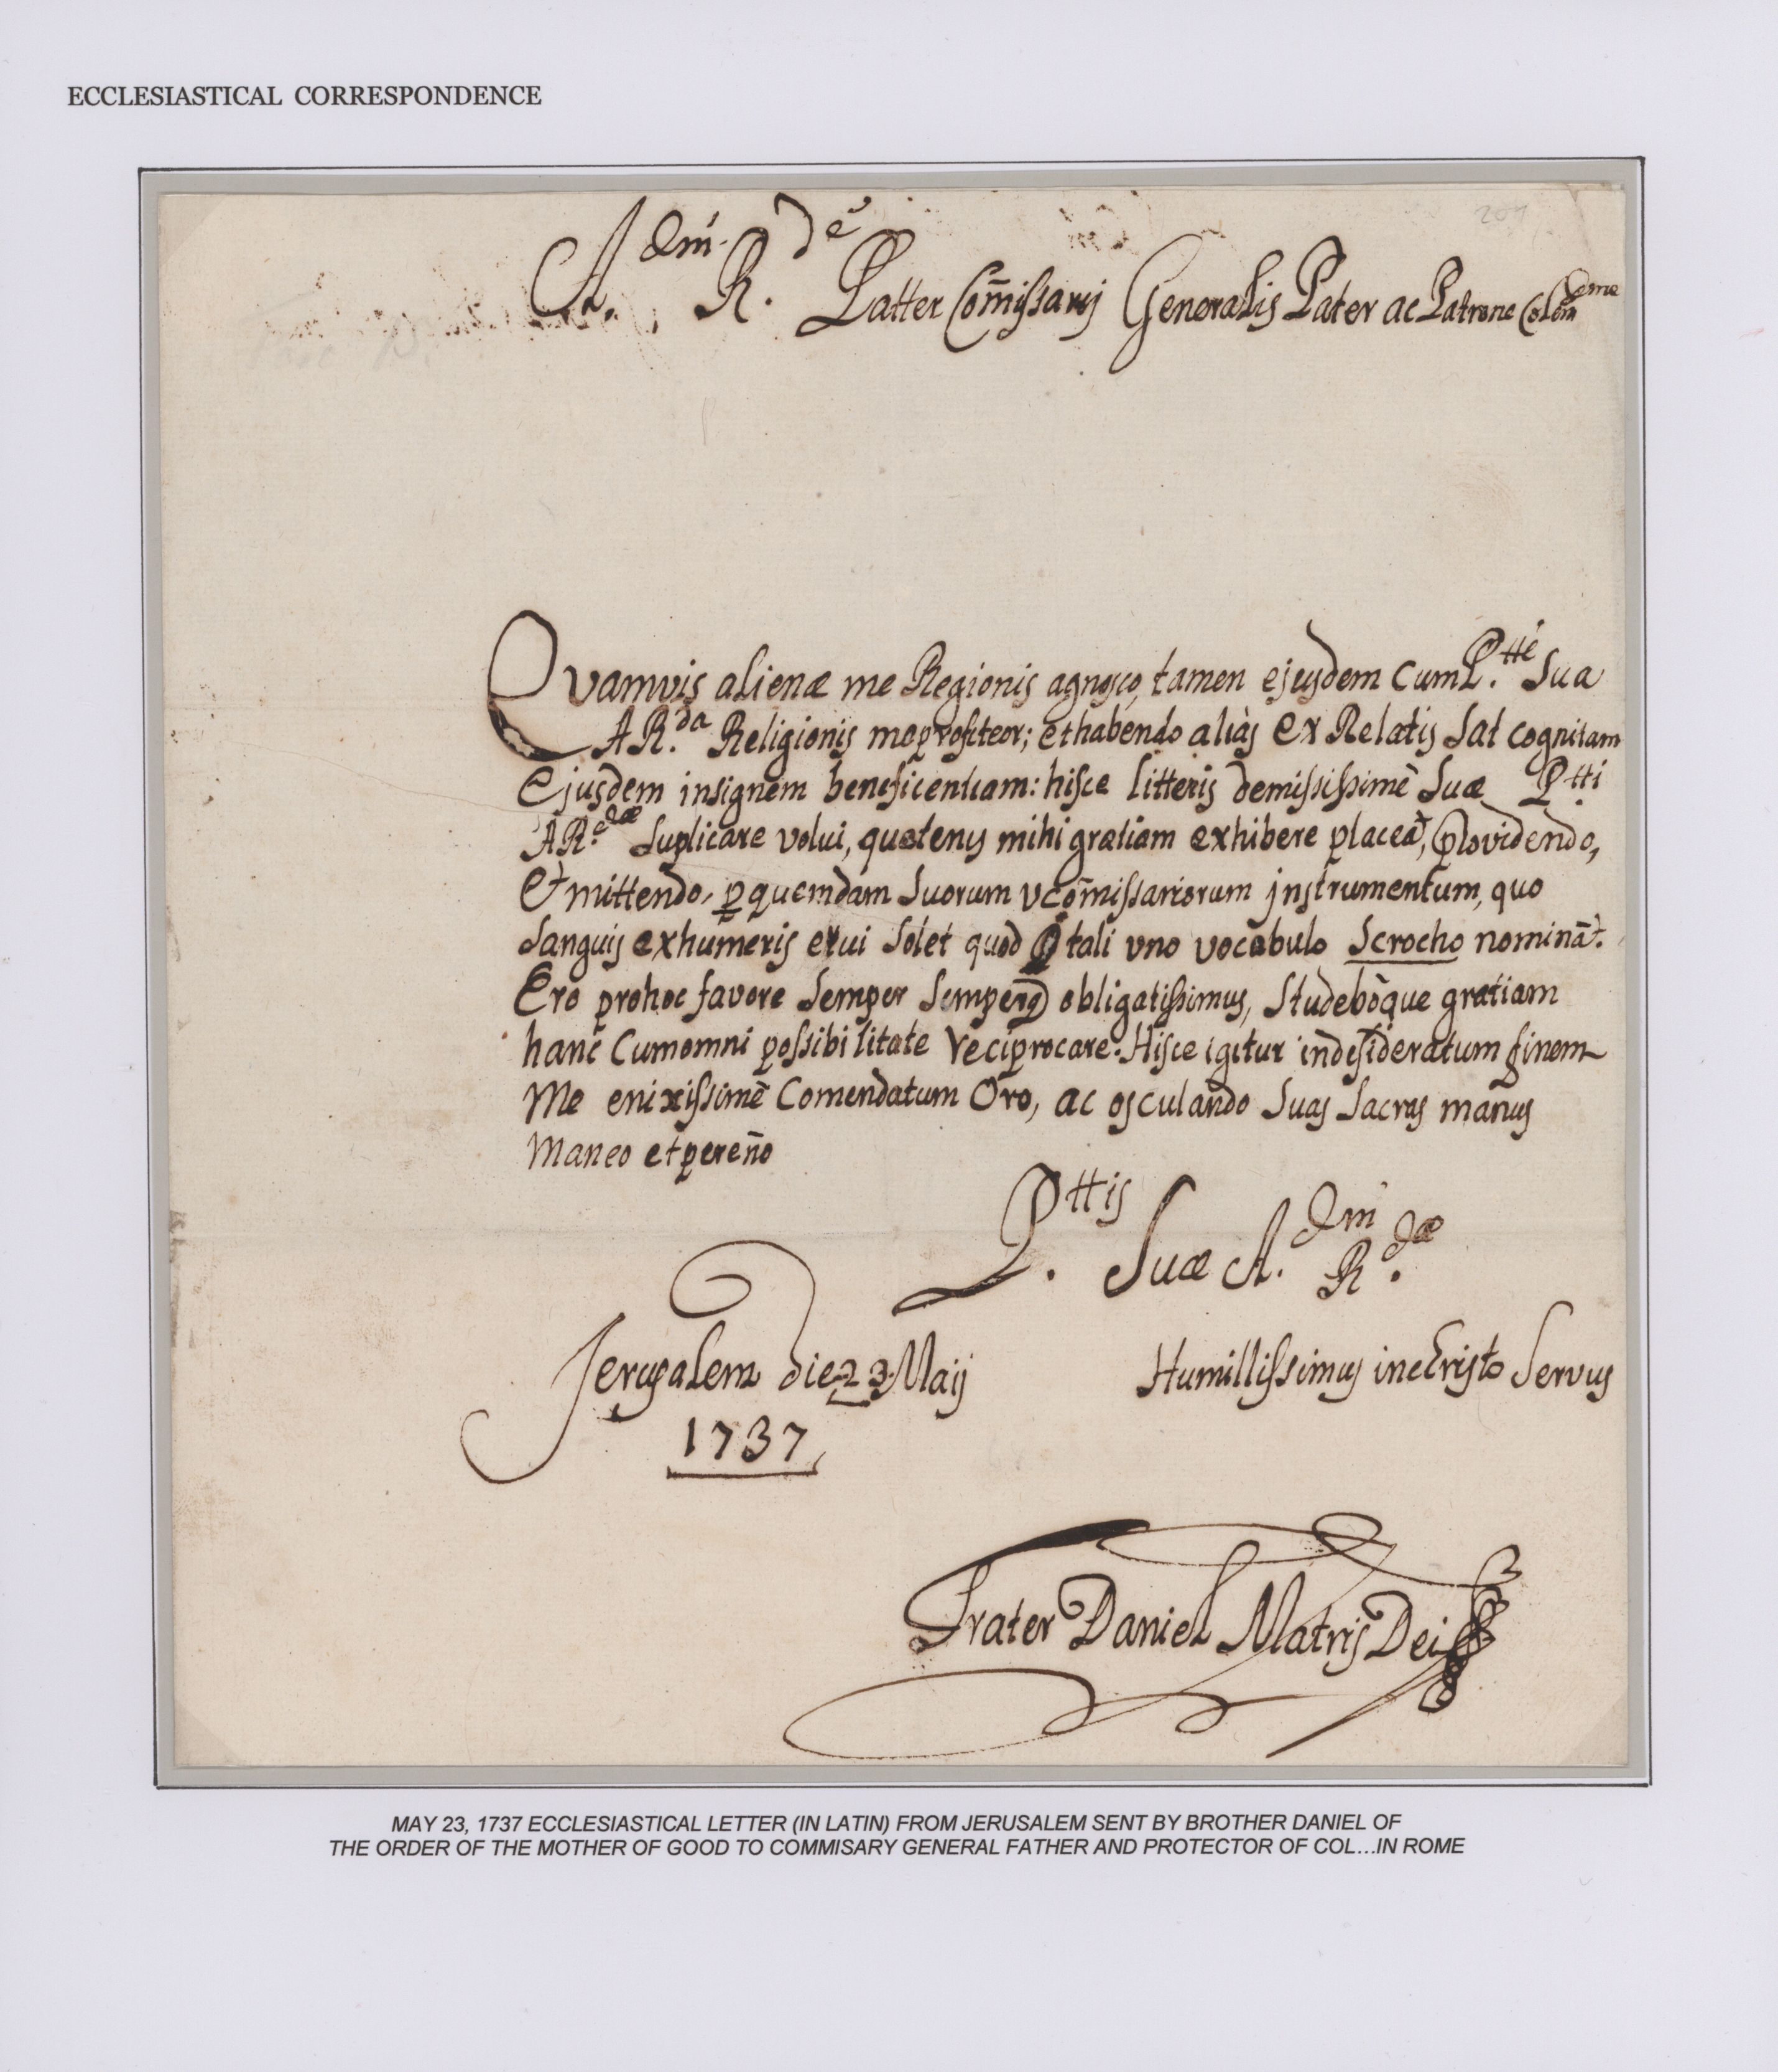 ECCLESIASTICAL CORRESPONDENCE
A. dm. R. de Patter Com̃issarij Generalis Pater ac Patrone Colm deme
Quamvis alienæ me Regionis agnosco, tamen ejusdem cum P.tte Sua
A R.da Religionis me profiteor; et habendo aliàs ex Relatis Sat cognitam
Ejusdem insignem beneficentiam: hisce litteris demississimè Suæ P.tti
A R.dæ Suplicare volui, quatenus mihi gratiam exhibere placeat, providendo,
et mittendo, p quemdam Suorum v com̃issariorum instrumentum, quo
Sanguis ex humeris erui Solet quod tali uno vocabulo Scrocho nominat.
Ero pro hoc favore Semper Semperq obligatissimus, Studeboque gratiam
hanc Cum omni possibilitate reciprocare. Hisce igitur in desideratum finem
Me enixissimè Comendatum Oro, ac osculando Suas Sacras manus
Maneo et pereño
P.ttis Suæ A.dm R.dæ
Jerusalem die 23 Maij
Humillissimus in cHristo Servus
1737
Frater Daniel Matris Dei
MAY 23, 1737 ECCLESIASTICAL LETTER (IN LATIN) FROM JERUSALEM SENT BY BROTHER DANIEL OF
THE ORDER OF THE MOTHER OF GOOD TO COMMISARY GENERAL FATHER AND PROTECTOR OF COL...IN ROME